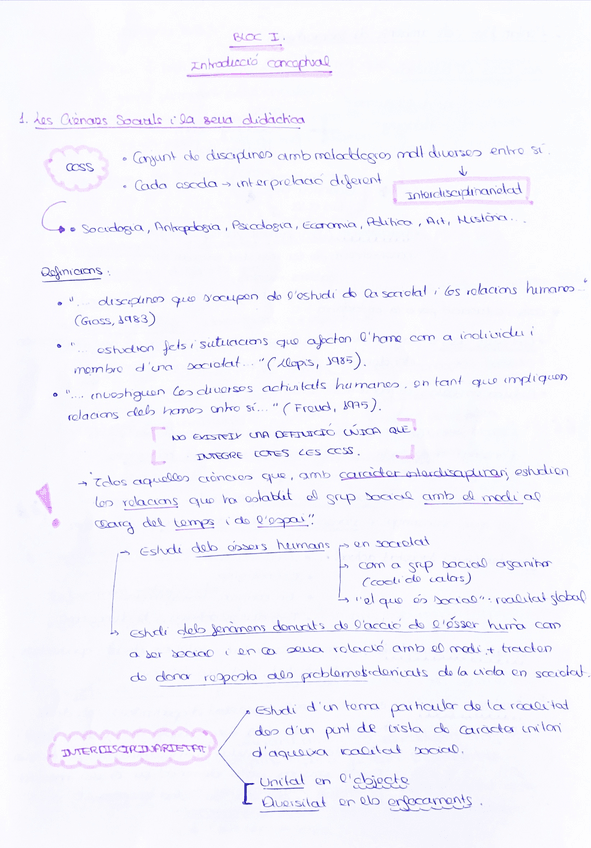 BLOC I.
Introducció conceptual
1. Les Ciències Socials i la seua didàctica
CCSS
• Conjunt de disciplines amb metodologies molt diverses entre sí.
• Cada escola → interpretació diferent
↓
Interdisciplinarietat
• Sociologia, Antropologia, Psicologia, Economia, Política, Art, Història...
Definicions:
• "... disciplines que s'ocupen de l'estudi de la societat i les relacions humanes..."
(Gross, 1983)
• "... estudien fets i situacions que afecten l'home com a individu i
membre d'una societat..." (Llopis, 1985).
• "... investiguen les diverses activitats humanes, en tant que impliquen
relacions dels homes entre sí..." (Freud, 1975).
NO EXISTEIX UNA DEFINICIÓ ÚNICA QUE
INTEGRE TOTES LES CCSS.
! → "Totes aquelles ciències que, amb caràcter interdisciplinari, estudien
les relacions que ha establit el grup social amb el medi al
llarg del temps i de l'espai".
→ Estudi dels éssers humans → en societat
→ com a grup social organitzat
→ "el que és social": realitat global
→ Estudi dels fenòmens derivats de l'acció de l'ésser humà com
a ser social i en la seua relació amb el medi, + tracten
de donar resposta als problemes derivats de la vida en societat.
INTERDISCIPLINARIETAT
Estudi d'un tema particular de la realitat
des d'un punt de vista de caràcter unitari
d'aqueixa realitat social.
Unitat en l'objecte
Diversitat en els enfocaments.